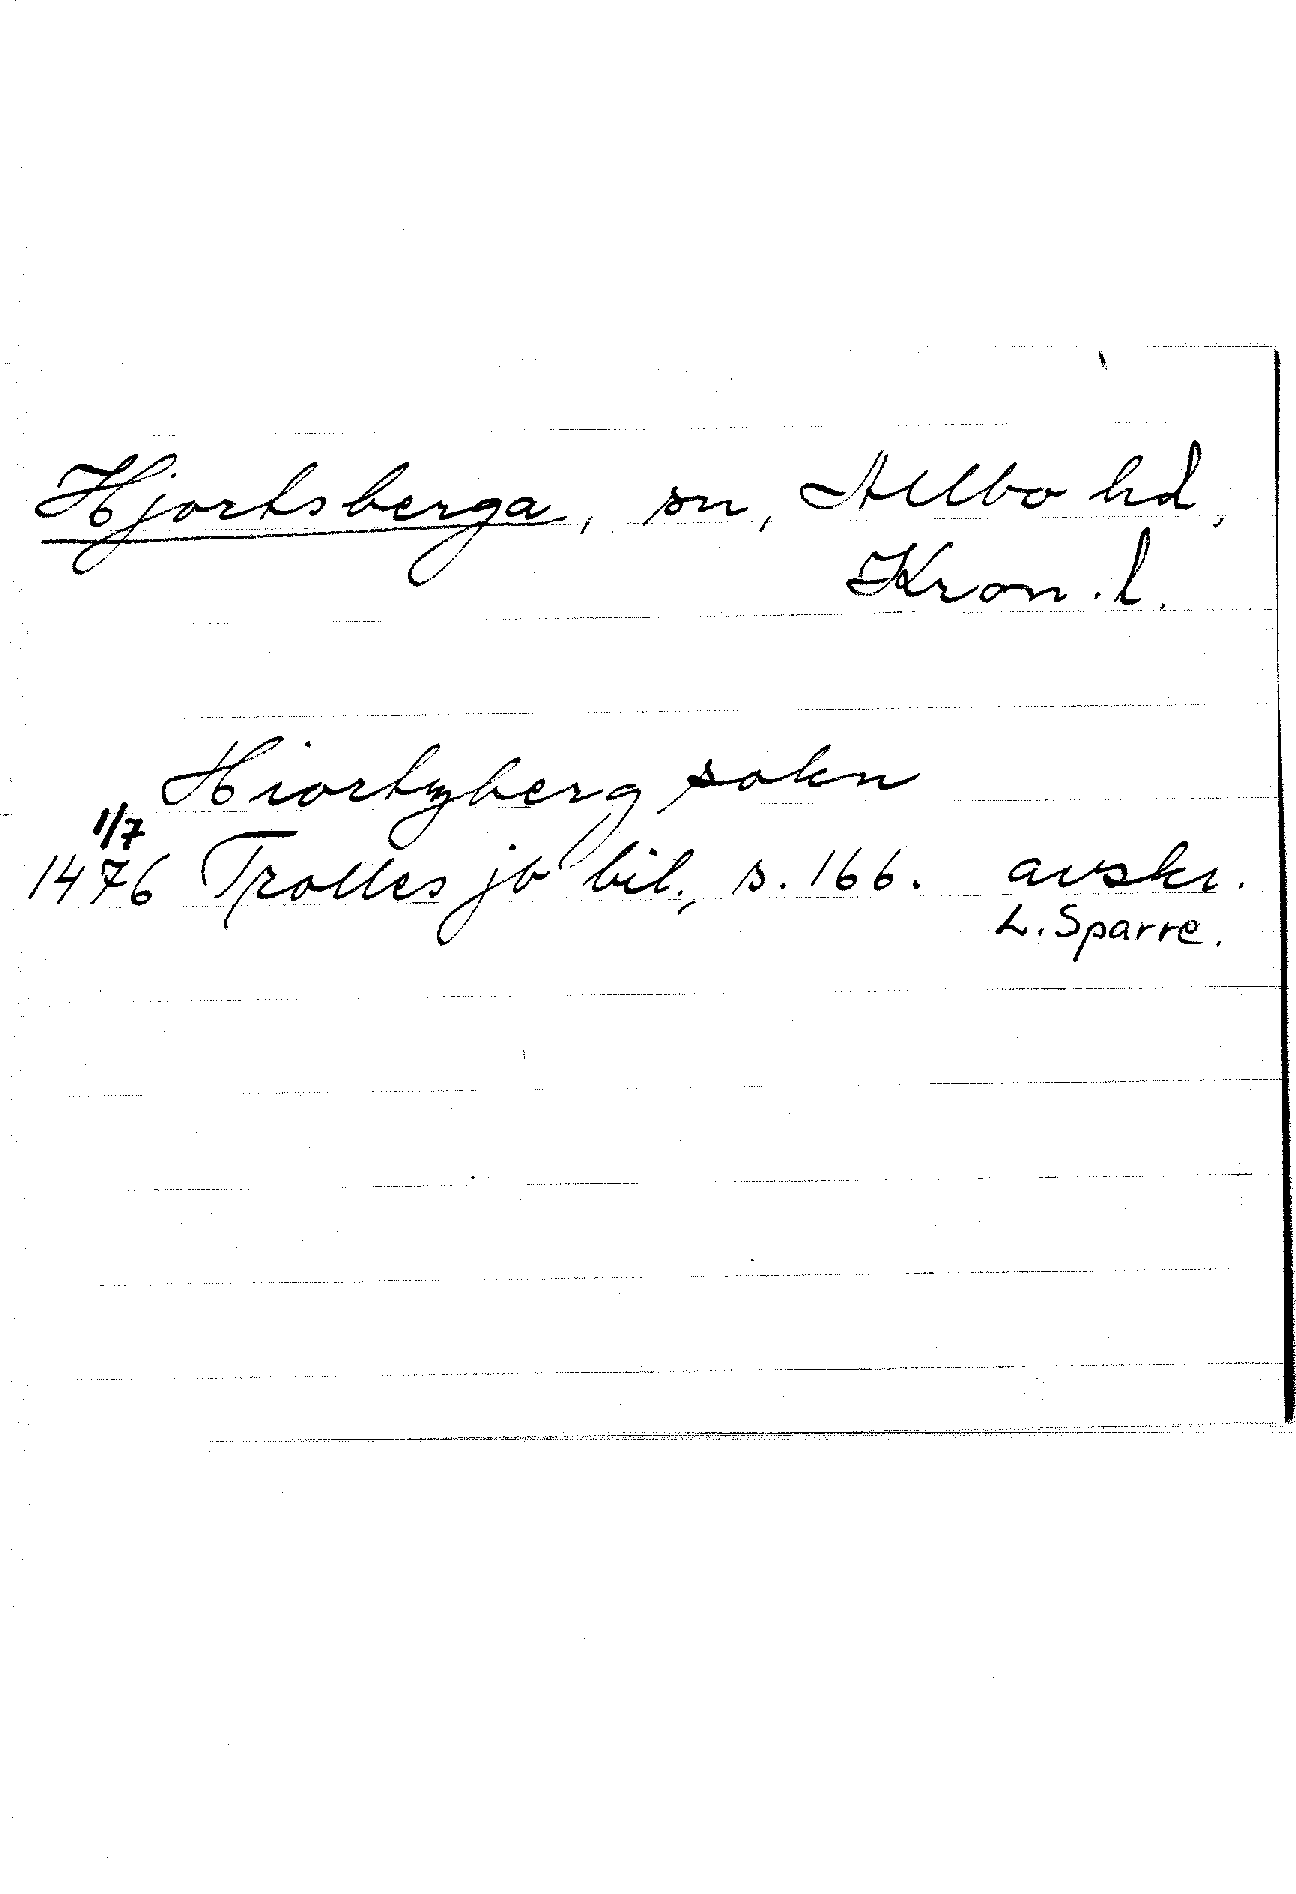 Hjortsberga, sn, Allbo hd,
Kron. l.
Hiortzberg sokn
1/7
1476 Trolles jb bil., s. 166. avskr.
L. Sparre.